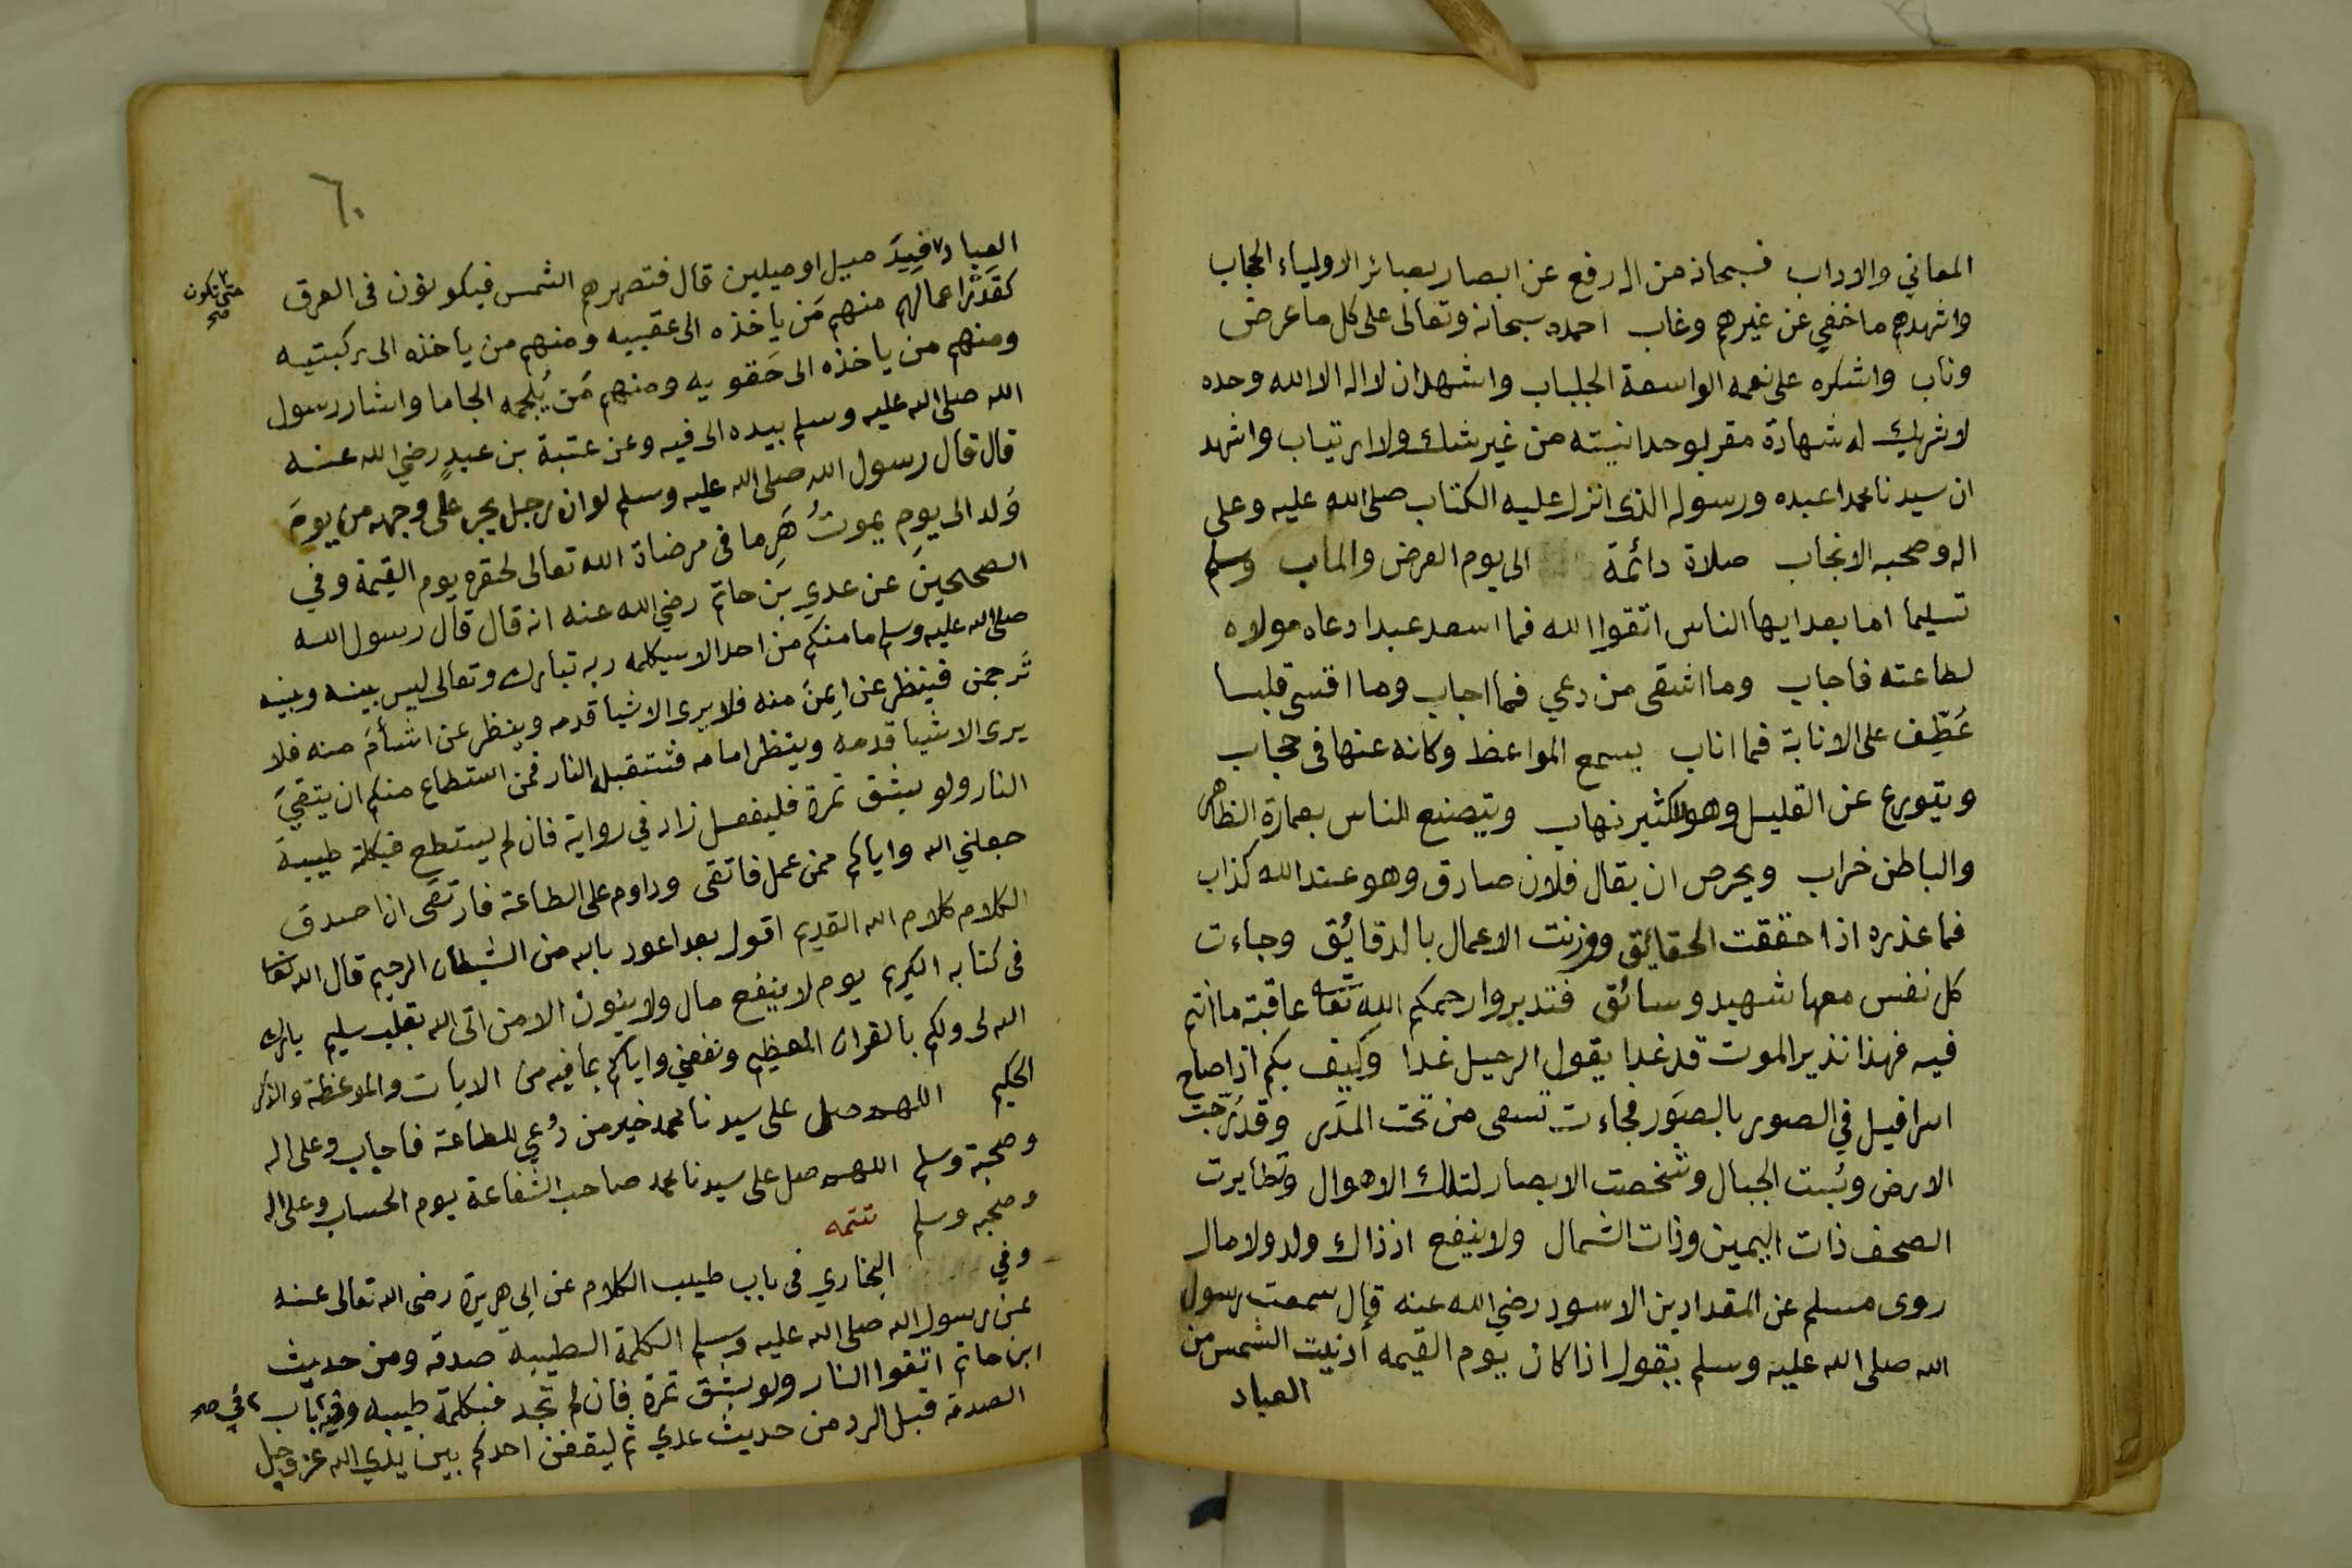 المعاني والاداب فسبحانه من اله رفع عن ابصار بصائر الاولياء الحجاب
واشهدهم ما خفي عن غيرهم وغاب احمده سبحانه وتعالى على كل ما عرض
وناب واشكره على نعمه الواسعة الجلباب واشهد ان لا اله الا الله وحده
لا شريك له شهادة مقر بوحدانيته من غير شك ولا ارتياب واشهد
ان سيدنا محمدا عبده ورسوله الذى انزل عليه الكتاب صلى الله عليه وعلى
اله وصحبه الانجاب صلاة دائمة الى يوم العرض والماب وسلم
تسليما اما بعد ايها الناس اتقوا الله فما اسعد عبدا دعاه مولاه
لطاعته فاجاب وما اشقى من دعي فما اجاب وما اقسى قلبا
عُطِّف على الانابة فما اناب يسمع المواعظ وكانه عنها فى حجاب
ويتورع عن القليل وهو للكثير نهاب ويتصنع للناس بعمارة الظاهر
والباطن خراب ويحرص ان يقال فلان صادق وهو عند الله كذاب
فما عذره اذا حققت الحقائق ووزنت الاعمال بالدقائق وجاءت
كل نفس معها شهيد وسائق فتدبروا رحمكم الله تعا عاقبة ما انتم
فيه فهذا نذير الموت قد غدا يقول الرحيل غدا وكيف بكم اذا صاح
اسرافيل في الصور بالصور فجاءت تسعى من تحت المدر وقد رجت
الارض وبُست الجبال وشخصت الابصار لتلك الاهوال وتطايرت
الصحف ذات اليمين وذات الشمال ولا ينفع اذ ذاك ولد ولا مال
روى مسلم عن المقداد بن الاسود رضي الله عنه قال سمعت رسول
الله صلى الله عليه وسلم يقول اذا كان يوم القيمه ادنيت الشمس من
العباد
٦٠
العباد قِيدَ ميل او ميلين قال فتصهرهم الشمس فيكونون فى العرق
حتى تكون
صح
كقدر اعمالهم منهم مَن ياخذه الى عقبيه ومنهم من ياخذه الى ركبتيه
ومنهم من ياخذه الى حَقويه ومنهم مَن يُلجمه الجاما واشار رسول
الله صلى الله عليه وسلم بيده الى فيه وعن عتبة بن عبدٍ رضي الله عنه
قال قال رسول الله صلى الله عليه وسلم لو ان رجلا يجر على وجهه من يومَ
وُلد الى يوم يموتُ هَرِما فى مرضاة الله تعالى لحقره يوم القيمة وفي
الصحيحين عن عدي بن حاتم رضي الله عنه انه قال قال رسول الله
صلى الله عليه وسلم ما منكم من احد الا سيكلمه ربه تبارك وتعالى ليس بينه وبينه
تَرجمن فينظر عن ايمنَ منه فلا يرى الا شيا قدمه وينظر عن اشأمَ منه فلا
يرى الا شيا قدمه وينظر امامه فتستقبله النار فمن استطاع منكم ان يتقيَ
النار ولو بشق تمرة فليفعل زاد في رواية فان لم يستطع فبكلمة طيبة
جعلني الله واياكم ممن عمل فاتقى وداوم على الطاعة فارتقى ان اصدق
الكلام كلام الله القديم اقول بعد اعوذ بالله من الشيطان الرجيم قال الله تعا
فى كتابه الكريم يوم لا ينفع مال ولا بنون الا من اتى الله بقلب سليم بارك
الله لى ولكم بالقران العظيم ونفعني واياكم بما فيه من الايات والموعظة والذكر
الحكيم اللهم صل على سيدنا محمد خير من دُعي للطاعة فاجاب وعلى اله
وصحبه وسلم اللهم صل على سيدنا محمد صاحب الشفاعة يوم الحساب وعلى اله
وصحبه وسلم تتمه
وفي البخاري فى باب طيب الكلام عن ابي هريرة رضى الله تعالى عنه
عن رسول الله صلى الله عليه وسلم الكلمة الطيبة صدقه ومن حديث
ابن حاتم اتقوا النار ولو بشق تمرة فان لم تجد فبكلمة طيبه وفي باب
الصدقه قبل الرد من حديث عدي ثم ليقفن احدكم بين يدي الله عز وجل